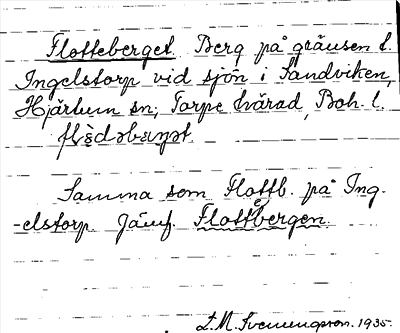 Flotteberget. Berg på gränsen t.
Ingelstorp vid sjön i Sandviken,
Hjärtum sn; Torpe härad, Boh. l.
Samma som Flottb. på Ing-
-elstorp. Jämf. Flottbergen.
L.M. Svenungsson. 1935.